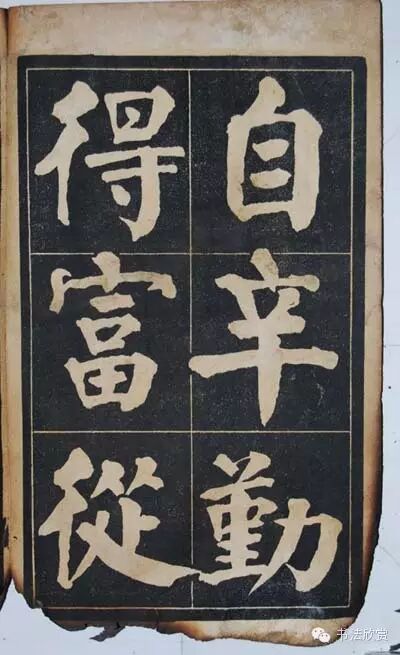 自辛勤
得富從
书法欣赏